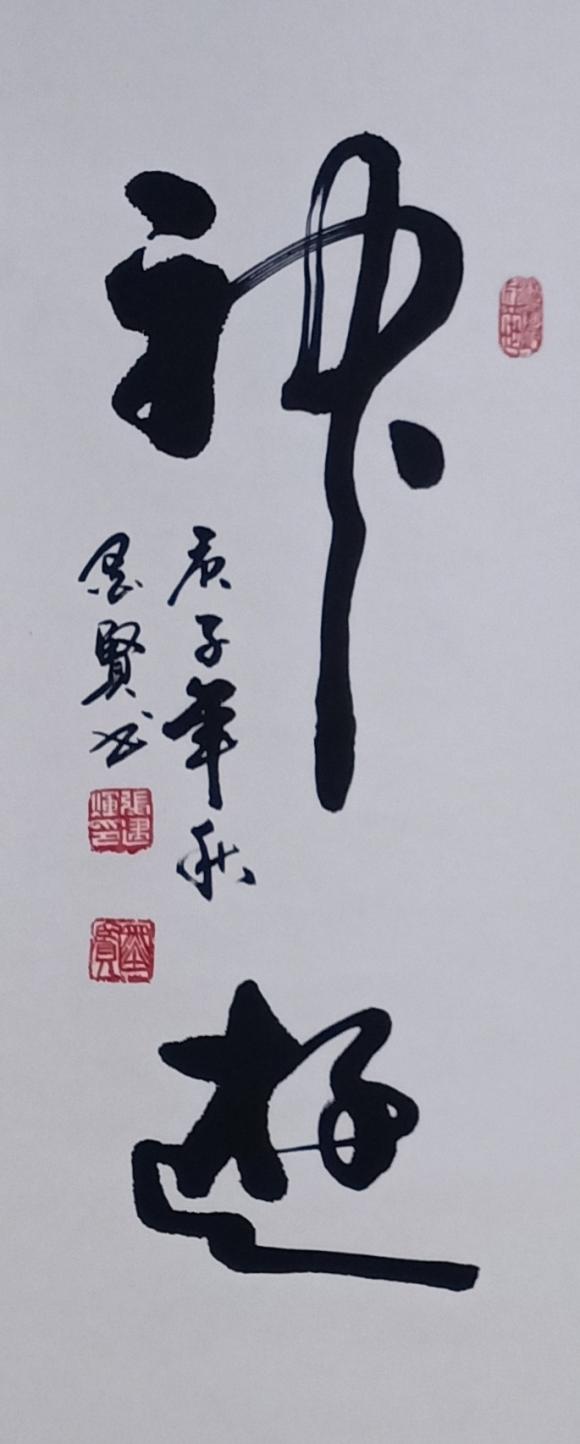 神遊
庚子年秋
墨賢书